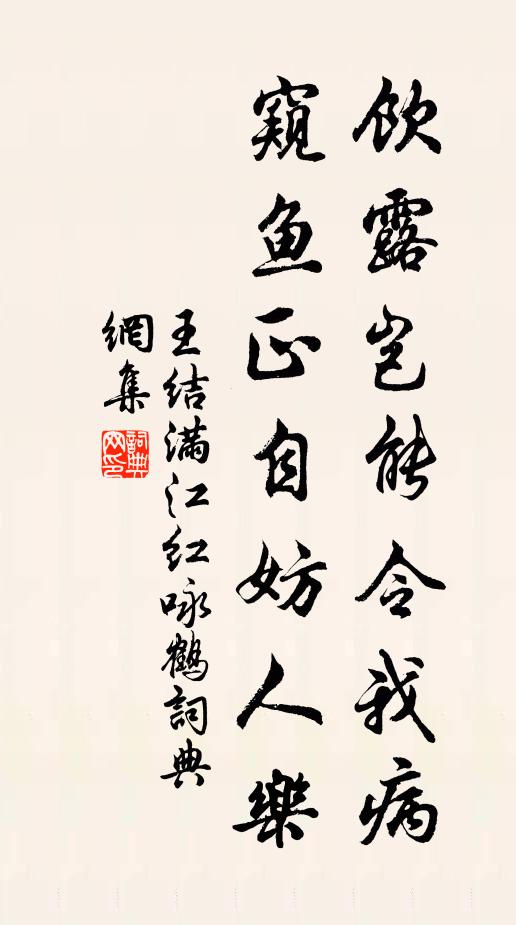 飲露豈能令我病
窺鱼正自妨人樂
王结满江红咏鶴詞典
網集
詞典網印